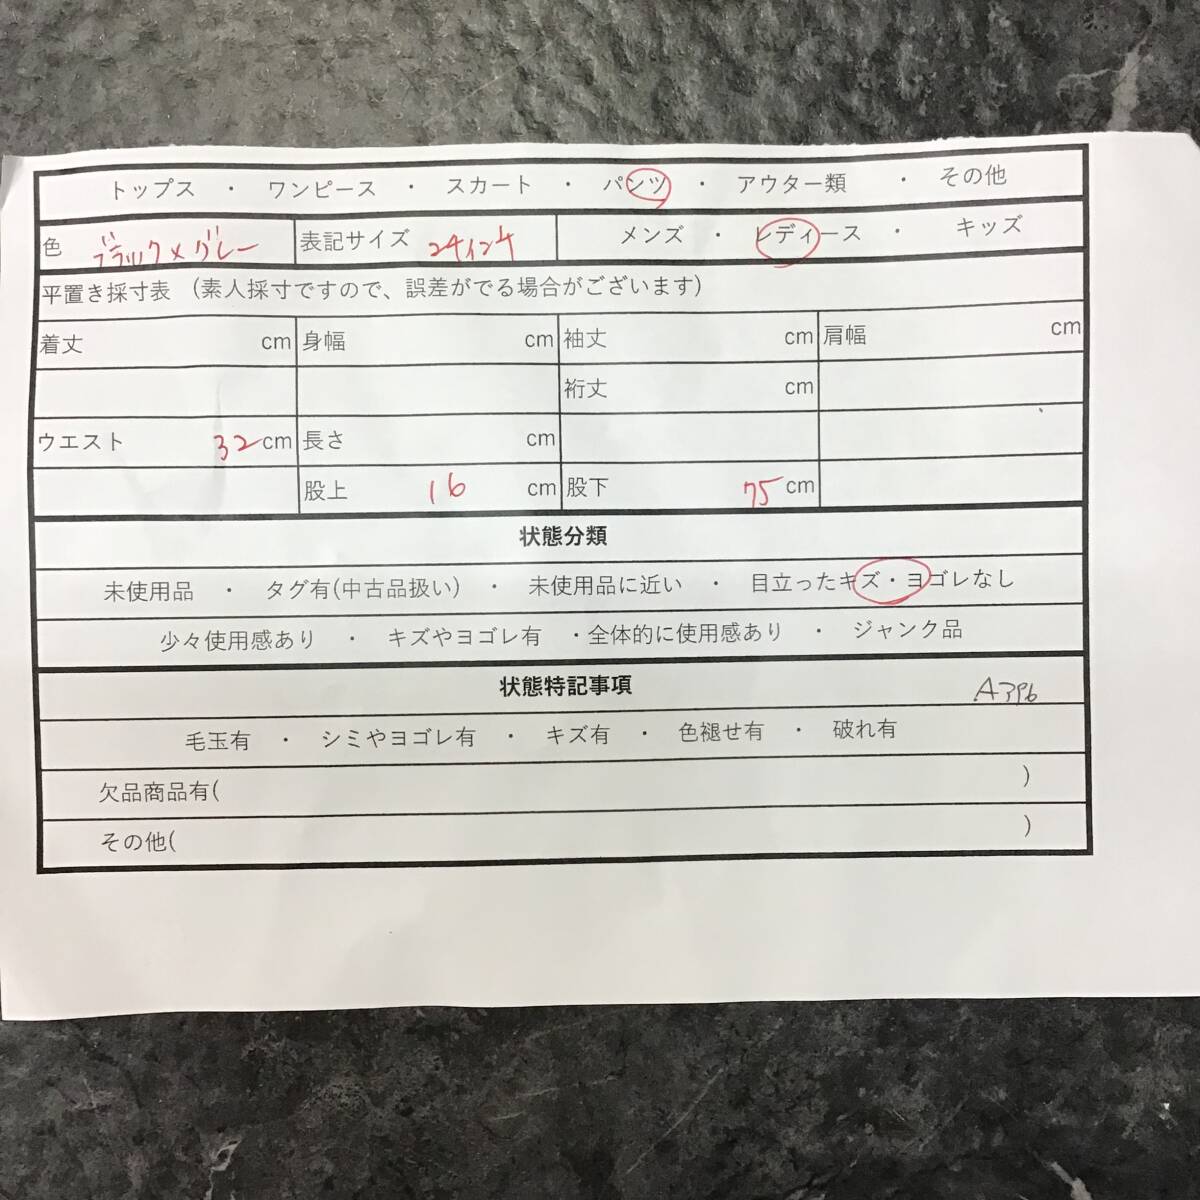 トップス ・ ワンピース ・ スカート ・ パンツ ・ アウター類 ・ その他
色 ブラック×グレー 表記サイズ 24インチ メンズ ・ レディース ・ キッズ
平置き採寸表 (素人採寸ですので、誤差がでる場合がございます)
着丈 cm 身幅 cm 袖丈 cm 肩幅 cm
裄丈 cm
ウエスト 32cm 長さ cm
股上 16 cm 股下 75cm
状態分類
未使用品 ・ タグ有(中古品扱い) ・ 未使用品に近い ・ 目立ったキズ・ヨゴレなし
少々使用感あり ・ キズやヨゴレ有 ・全体的に使用感あり ・ ジャンク品
状態特記事項 A396
毛玉有 ・ シミやヨゴレ有 ・ キズ有 ・ 色褪せ有 ・ 破れ有
欠品商品有( )
その他( )